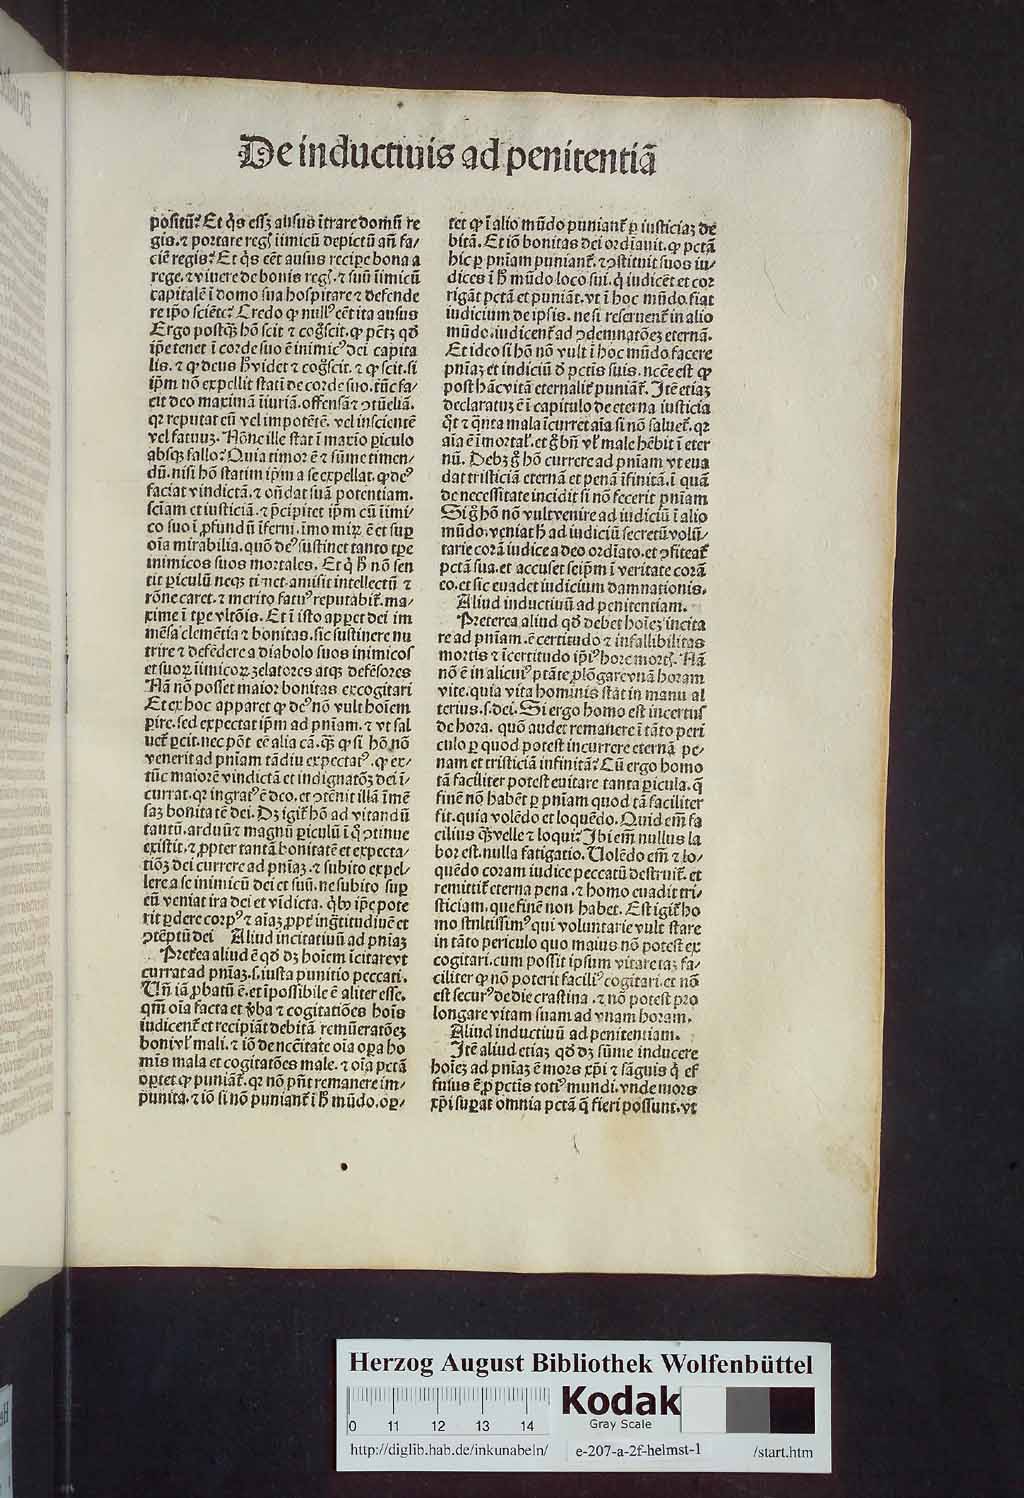 De inductiuis ad penitentiã
positũ? Et q̃s essꝫ ausus ĩtrare domũ re
gis. ⁊ portare regꝭ iimicũ depictũ añ fa/
ciẽ regis? Et q̃s eẽt ausus recipe bona a
rege. ⁊ viuere de bonis regꝭ. ⁊ suũ iimicũ
capitalẽ ĩ domo sua hospitare ⁊ defende
re ip̃o sciẽte? Credo ꝙ nullꝰ eẽt ita ausus
Ergo postꝙ̃ hõ scit ⁊ cog̃scit. ꝙ pẽtꝫ qd̃
ip̃e tenet ĩ corde suo ẽ inimicꝰ dei capita
lis. ⁊ ꝙ deus h̃ videt ⁊ cog̃scit. ⁊ ꝙ scit. si
ip̃m nõ expellit statĩ de corde suo. tũc fa/
cit deo maximã ĩiuriã. offensã ⁊ ꝯtũeliã.
qr reputat eũ vel impotẽtẽ. vel inscientẽ
vel fatuuꝫ. Nõne ille stat ĩ maxĩo ꝑiculo
absqꝫ fallo? Quia timor ẽ ⁊ sũme timen/
dũ. nisi hõ statim ip̃m a se expellat. ꝙ deꝰ
faciat vindictã. ⁊ oñdat suã potentiam.
sciam et iusticiã. ⁊ p̃cipitet ip̃m cũ iimi/
co suo ĩ ꝓfundũ ĩferni. imo mirꝫ ẽ et suꝑ
oĩa mirabilia. quõ deꝰ sustinet tanto tꝑe
inimicos suos mortales. Et q̃ h̃ nõ sen
tit ꝑiculũ neqꝫ timet. amisit intellectũ ⁊
rõne caret. ⁊ merito fatuꝰ reputabit̃. ma/
xime ĩ tꝑe vltõis. Et ĩ isto apꝑet dei im
mẽsa clemẽtia ⁊ bonitas. sic sustinere nu
trire ⁊ defẽdere a diabolo suos inimicos
et suoꝝ iimicoꝝ ꝫelatores atqꝫ defẽsores
Nã nõ posset maior bonitas excogitari
Et ex hoc apparet ꝙ deꝰ nõ vult hoĩem
ꝑire. sed expectat ip̃m ad pñiam. ⁊ vt sal
uet̃ ꝑcit. nec põt eẽ alia cã. ꝙ̃ ꝙ si hõ nõ
venerit ad pñiam tãdiu expectatꝰ. ꝙ ex/
tũc maiorẽ vindictã et indignatõꝫ dei ĩ/
currat. qr ingratꝰ ẽ deo. et ꝯtẽnit illã ĩmẽ
saꝫ bonitatẽ dei. Dꝫ igit̃ hõ ad vitandũ
tantũ. arduũ ⁊ magnũ ꝑiculũ ĩ q̃ ꝯtinue
existit. ⁊ ꝓpter tantã bonitatẽ et expecta/
tiõꝫ dei currere ad pñiaꝫ. ⁊ subito expel/
lere a se inimicũ dei et suũ. ne subito suꝑ
eũ veniat ira dei et vĩdicta. q̃bꝰ ip̃e pote
rit ꝑdere corpꝰ ⁊ aĩaꝫ ꝓpt̃ ing̃titudinẽ et
ꝯtẽptũ dei Aliud incitatiuũ ad pñiaꝫ
Pret̃ea aliud ẽ qd̃ dꝫ hoĩem ĩcitare vt
currat ad pñiaꝫ. s. iusta punitio peccati.
Uñ iã ꝓbatũ ẽ. et ĩpossibile ẽ aliter esse.
qm̃ oĩa facta et v̓ba ⁊ cogitatiões hoĩs
iudicent̃ et recipiãt debitã remũeratõeꝫ
boni vl̓ mali. ⁊ iõ de nec̃citate oĩa oꝑa ho
mĩs mala et cogitatões male. ⁊ oĩa pctã
oꝑtet ꝙ puniãt̃. qr nõ pñt remanere im/
punita. ⁊ iõ si nõ puniant̃ ĩ h̃ mũdo. oꝑ/
tet ꝙ ĩ alio mũdo puniant̃ ꝑ iusticiaꝫ de
bitã. Et iõ bonitas dei ordĩauit. ꝙ pctã
hic ꝑ pñiam puniant̃. ⁊ ꝯstituit suos iu/
dices ĩ h̃ mũdo loco sui. q̃ iudicẽt et cor
rigãt pctã et puniãt. vt ĩ hoc mũdo fiat
iudicium de ipsis. ne si reseruent̃ in alio
mũdo. iudicent̃ ad ꝯdemnatõeꝫ eternã.
Et ideo si hõ nõ vult ĩ hoc mũdo facere
pñiaꝫ et iudiciũ d̃ pctis suis. nec̃e est ꝙ
post hãc vitã eternalit̃ puniat̃. Itẽ etiaꝫ
declaratuꝫ ẽ ĩ capitulo de eterna iusticia
q̃t ⁊ q̃nta mala ĩcurret aĩa si nõ saluet̃. qr
aĩa ẽ ĩmortal̓. et g̊ bñ vl̓ male hẽbit ĩ eter
nũ. Debꝫ g̊ hõ currere ad pñiam vt eua
dat tristiciã eternã et penã ĩfinitã. ĩ quã
de necessitate incidit si nõ fecerit pñiam
Si g̊ hõ nõ vult venire ad iudiciũ ĩ alio
mũdo. veniat h̃ ad iudiciũ secretũ volũ/
tarie corã iudice a deo ordĩato. et ꝯfiteat̃
pctã sua. et accuset seip̃m ĩ veritate corã
eo. et sic euadet iudicium damnationis.
Aliud inductiuũ ad penitentiam.
Preterea aliud qd̃ debet hoĩeꝫ incita
re ad pñiam. ẽ certitudo ⁊ infallibilitas
mortis ⁊ ĩcertitudo ip̃iꝰ hore mortꝭ. Nã
nõ ẽ in alicuiꝰ ptãte ꝓlõgare vnã horam
vite. quia vita hominis stat in manu al
terius. s. dei. Si ergo homo est incertus
de hora. quõ audet remanere ĩ tãto peri
culo ꝑ quod potest incurrere eternã pe/
nam et tristiciã infinitã? Cũ ergo homo
tã faciliter potest euitare tanta ꝑicula. q̃
finẽ nõ habẽt ꝑ pñiam quod tã faciliter
fit. quia volẽdo et loquẽdo. Quid em̃ fa
cilius ꝙ̃ velle ⁊ loqui? Ibi em̃ nullus la
bor est. nulla fatigatio. Uolẽdo em̃ ⁊ lo/
quẽdo coram iudice peccatũ destruit̃. et
remittit̃ eterna pena. ⁊ homo euadit tri/
sticiam. que finẽ non habet. Est igit̃ ho
mo stultissimꝰ qui voluntarie vult stare
in tãto periculo quo maius nõ potest ex
cogitari. cum possit ipsum vitare taꝫ fa/
ciliter ꝙ nõ poterit faciliꝰ cogitari. et nõ
est securꝰ de die crastina. ⁊ nõ potest pro
longare vitam suam ad vnam horam.
Aliud inductiuũ ad penitentiam.
Itẽ aliud etiaꝫ qd̃ dꝫ sũme inducere
hoĩeꝫ ad pñiaꝫ ẽ mors xp̃i ⁊ sãguis q̃ ef
fusus ẽ ꝓ pctis totiꝰ mundi. vnde mors
xp̃i suꝑat omnia pctã q̃ fieri possunt. vt
Herzog August Bibliothek Wolfenbüttel
0 11 12 13 14
Kodak
Gray Scale
http://diglib.hab.de/inkunabeln/ e-207-a-2f-helmst-1 /start.htm